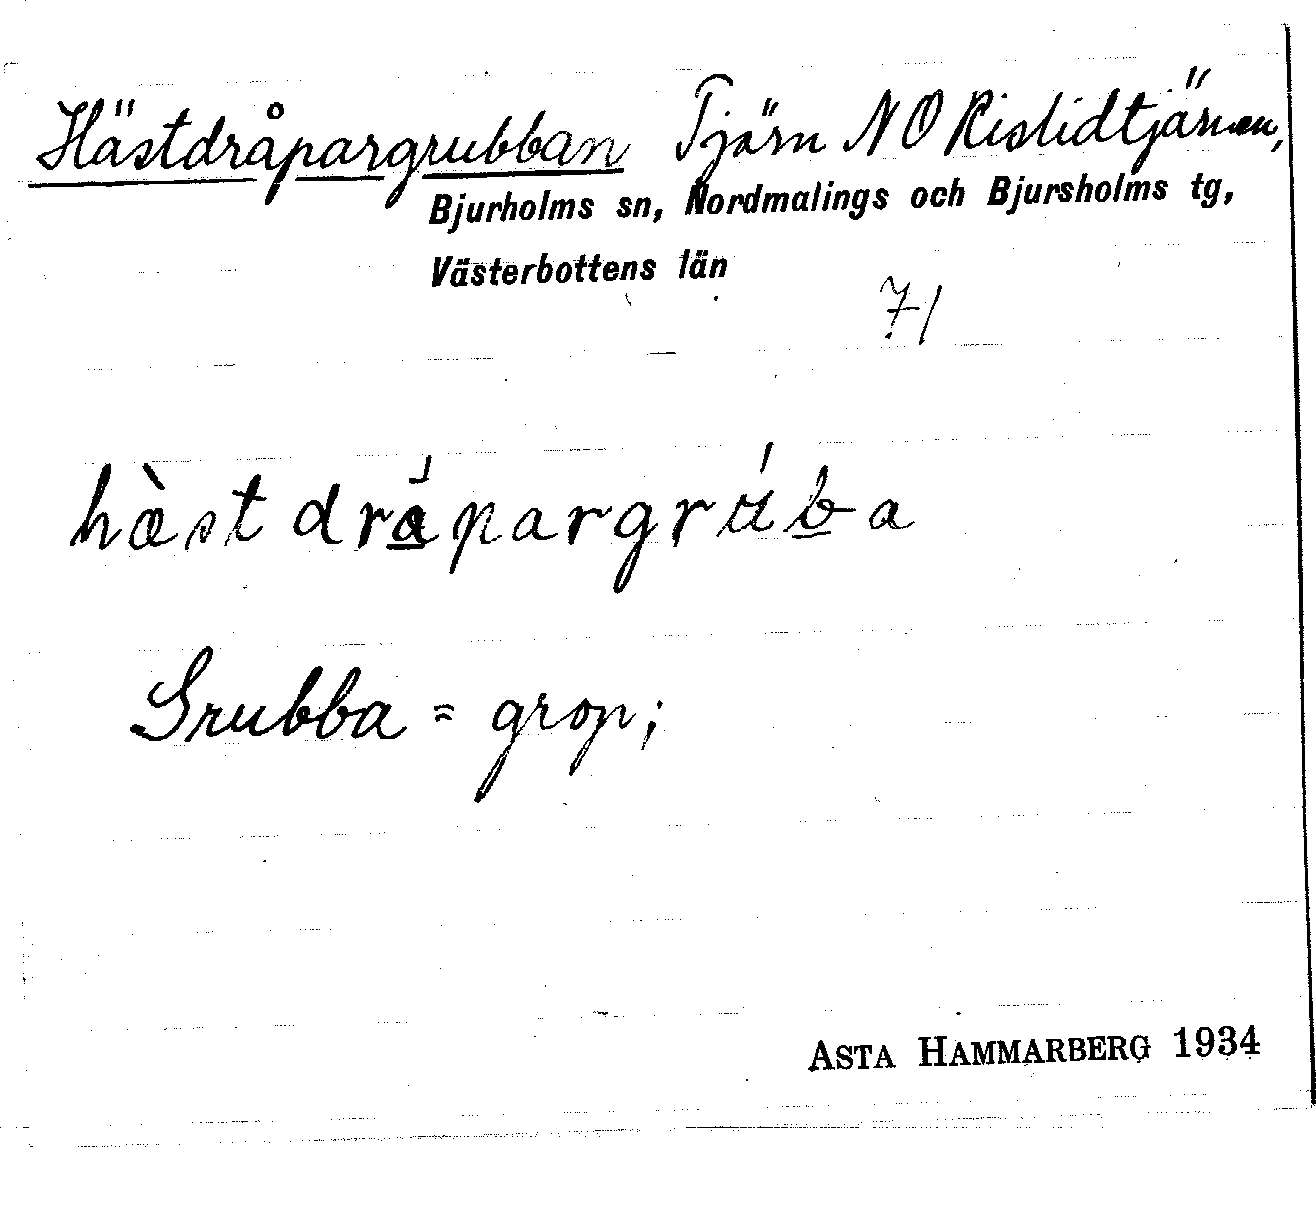 Hästdråpargrubban Tjärn NO Rislidtjärnen,
Bjurholms sn, Nordmalings och Bjursholms tg,
Västerbottens län
71
hæ̀stdrápargrúba
Grubba = grop;
ASTA HAMMARBERG 1934